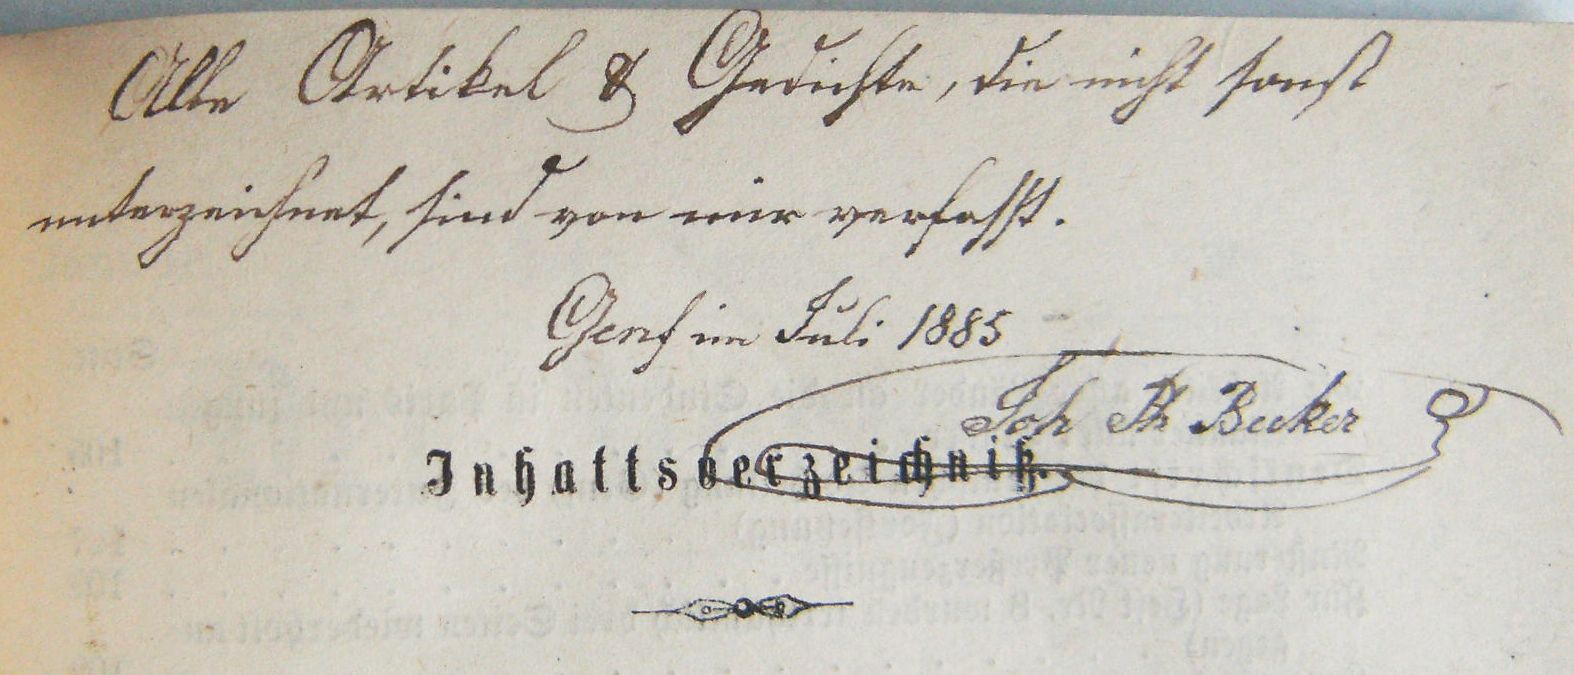 Alle Artikel & Gedichte, die nicht sonst
unterzeichnet, sind von mir verfaßt.
Genf im Juli 1885
Joh Ph Becker
Inhaltsverzeichniß.